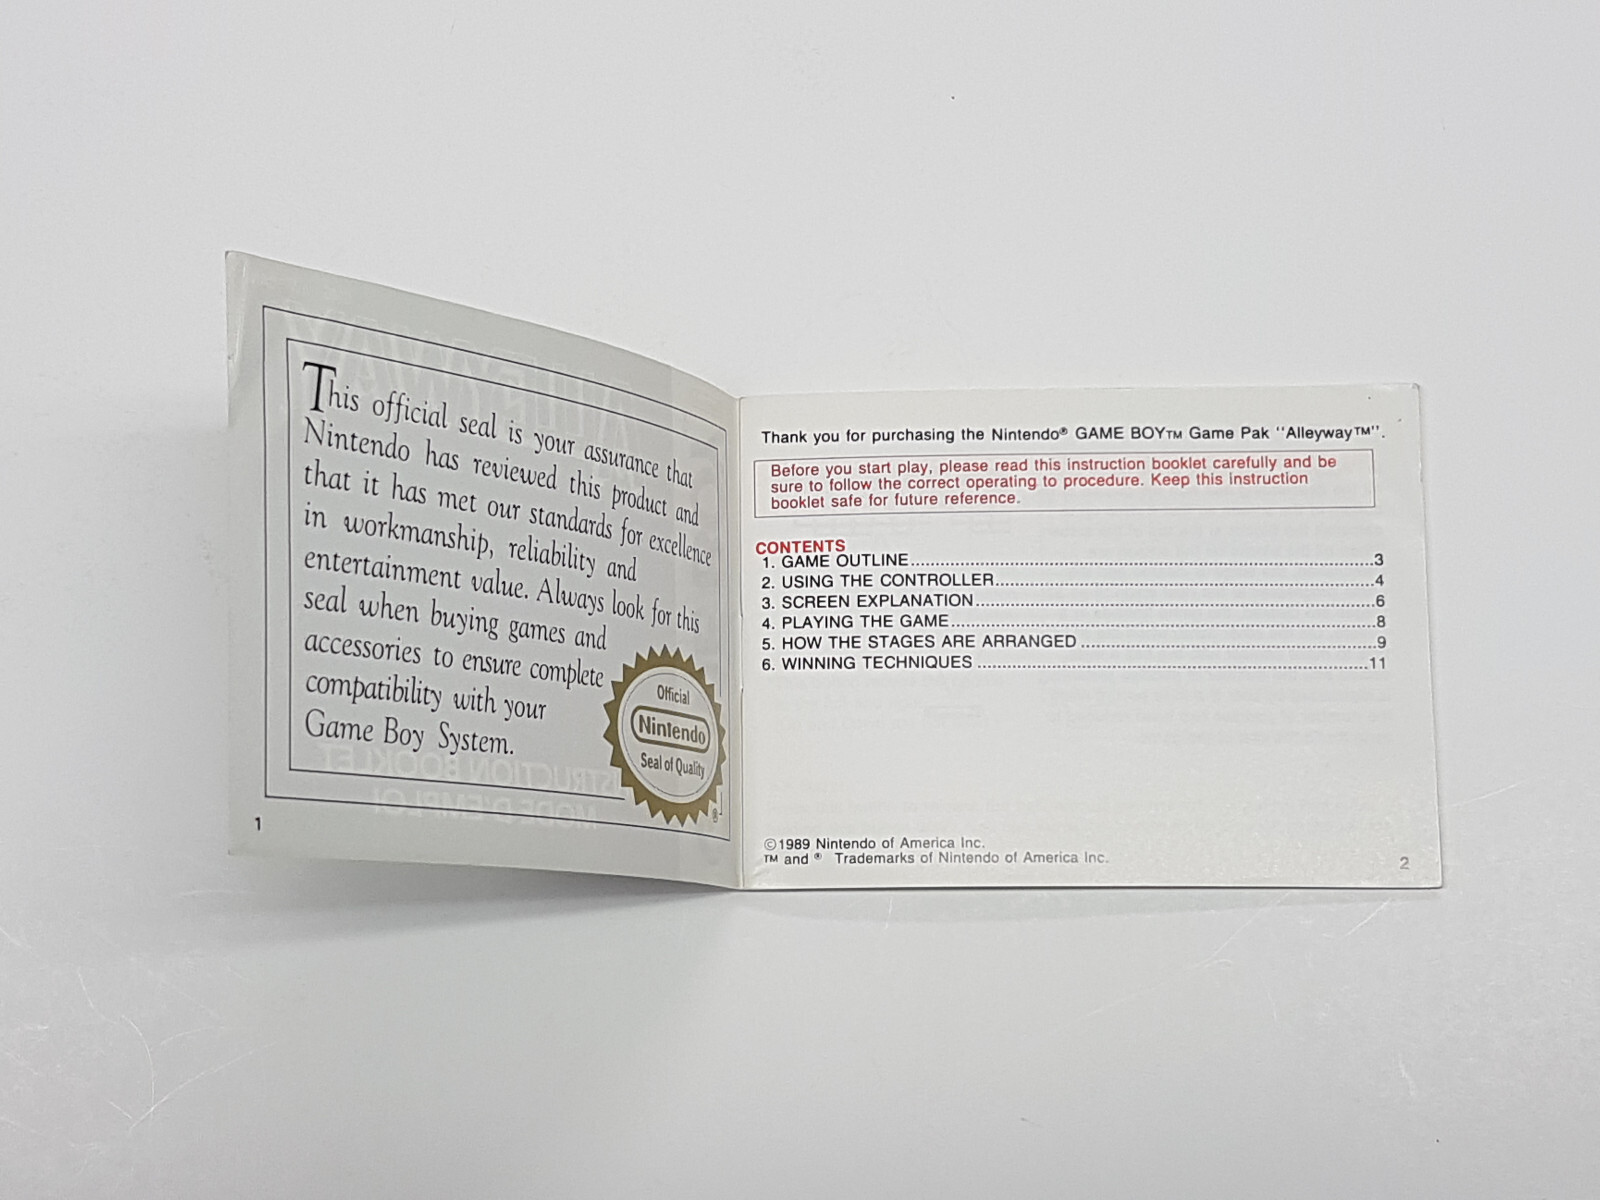 This official seal is your assurance that
Nintendo has reviewed this product and
that it has met our standards for excellence
in workmanship, reliability and
entertainment value. Always look for this
seal when buying games and
accessories to ensure complete
compatibility with your
Game Boy System.
Official
Nintendo
Seal of Quality
®
1
Thank you for purchasing the Nintendo® GAME BOY™ Game Pak "Alleyway™".
Before you start play, please read this instruction booklet carefully and be
sure to follow the correct operating to procedure. Keep this instruction
booklet safe for future reference.
CONTENTS
1. GAME OUTLINE..........3
2. USING THE CONTROLLER..........4
3. SCREEN EXPLANATION..........6
4. PLAYING THE GAME..........8
5. HOW THE STAGES ARE ARRANGED..........9
6. WINNING TECHNIQUES..........11
©1989 Nintendo of America Inc.
™ and ® Trademarks of Nintendo of America Inc.
2